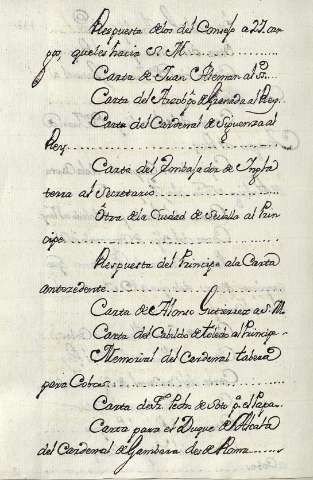 Respuesta de los del Consejo a 27. car
gos, que les hacia S. M. ..........
Carta de Juan Aleman al ..........
Carta del Arzobpo de Granada al Rey.
Carta del Cardenal de Siguenza al
Rey ..........
Carta del Embajador de Ingla
terra al Secretario ..........
Otra de la Ciudad de Sevilla al Prin
cipe ..........
Respuesta del Principe a la Carta
antecedente ..........
Carta de Alonso Gutierrez a S. M.
Carta del Cabildo de Toledo al Principe.
Memorial del Cardenal Tabera
para Cobos ..........
Carta de Fr. Pedro de Soto pa. el Papa.
Carta para el Duque de Alcala
del Cardenal de Gambara desde Roma ..........